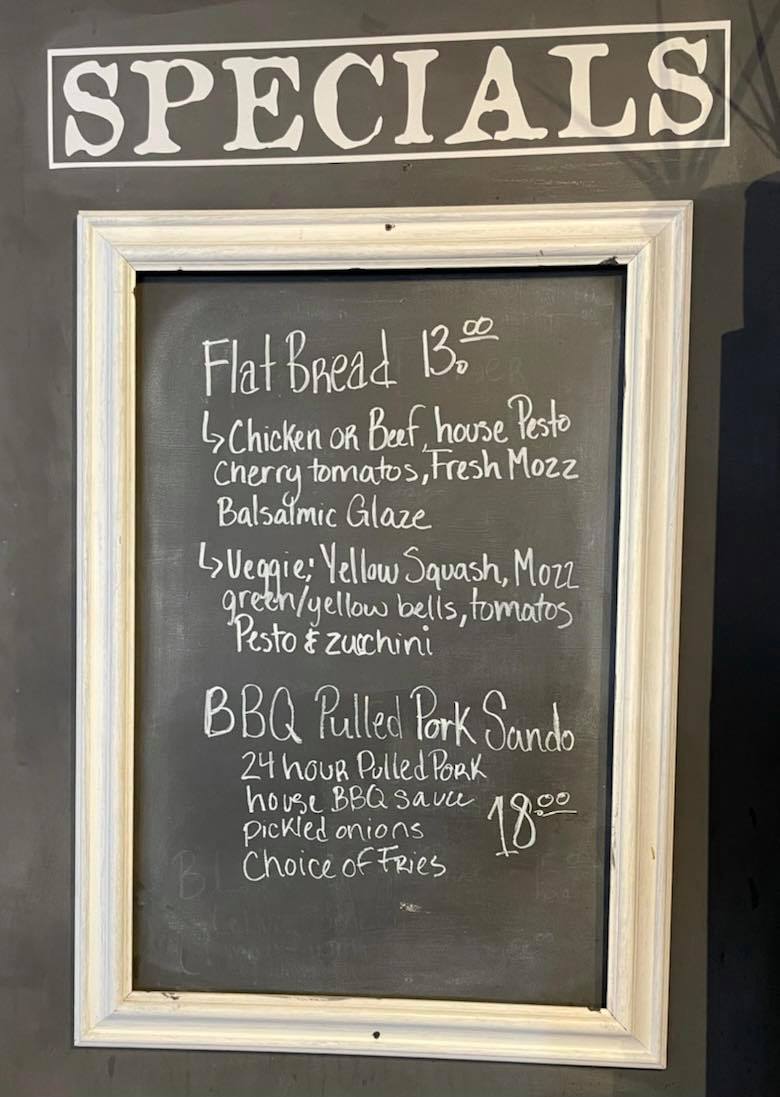 SPECIALS
Flat Bread 13.00
↳Chicken or Beef, house Pesto
Cherry tomatos, Fresh Mozz
Balsalmic Glaze
↳Veggie: Yellow Squash, Mozz
green/yellow bells, tomatos
Pesto & zucchini
BBQ Pulled Pork Sando
24 hour Pulled Pork
house BBQ sauce
pickled onions
18.00
Choice of Fries